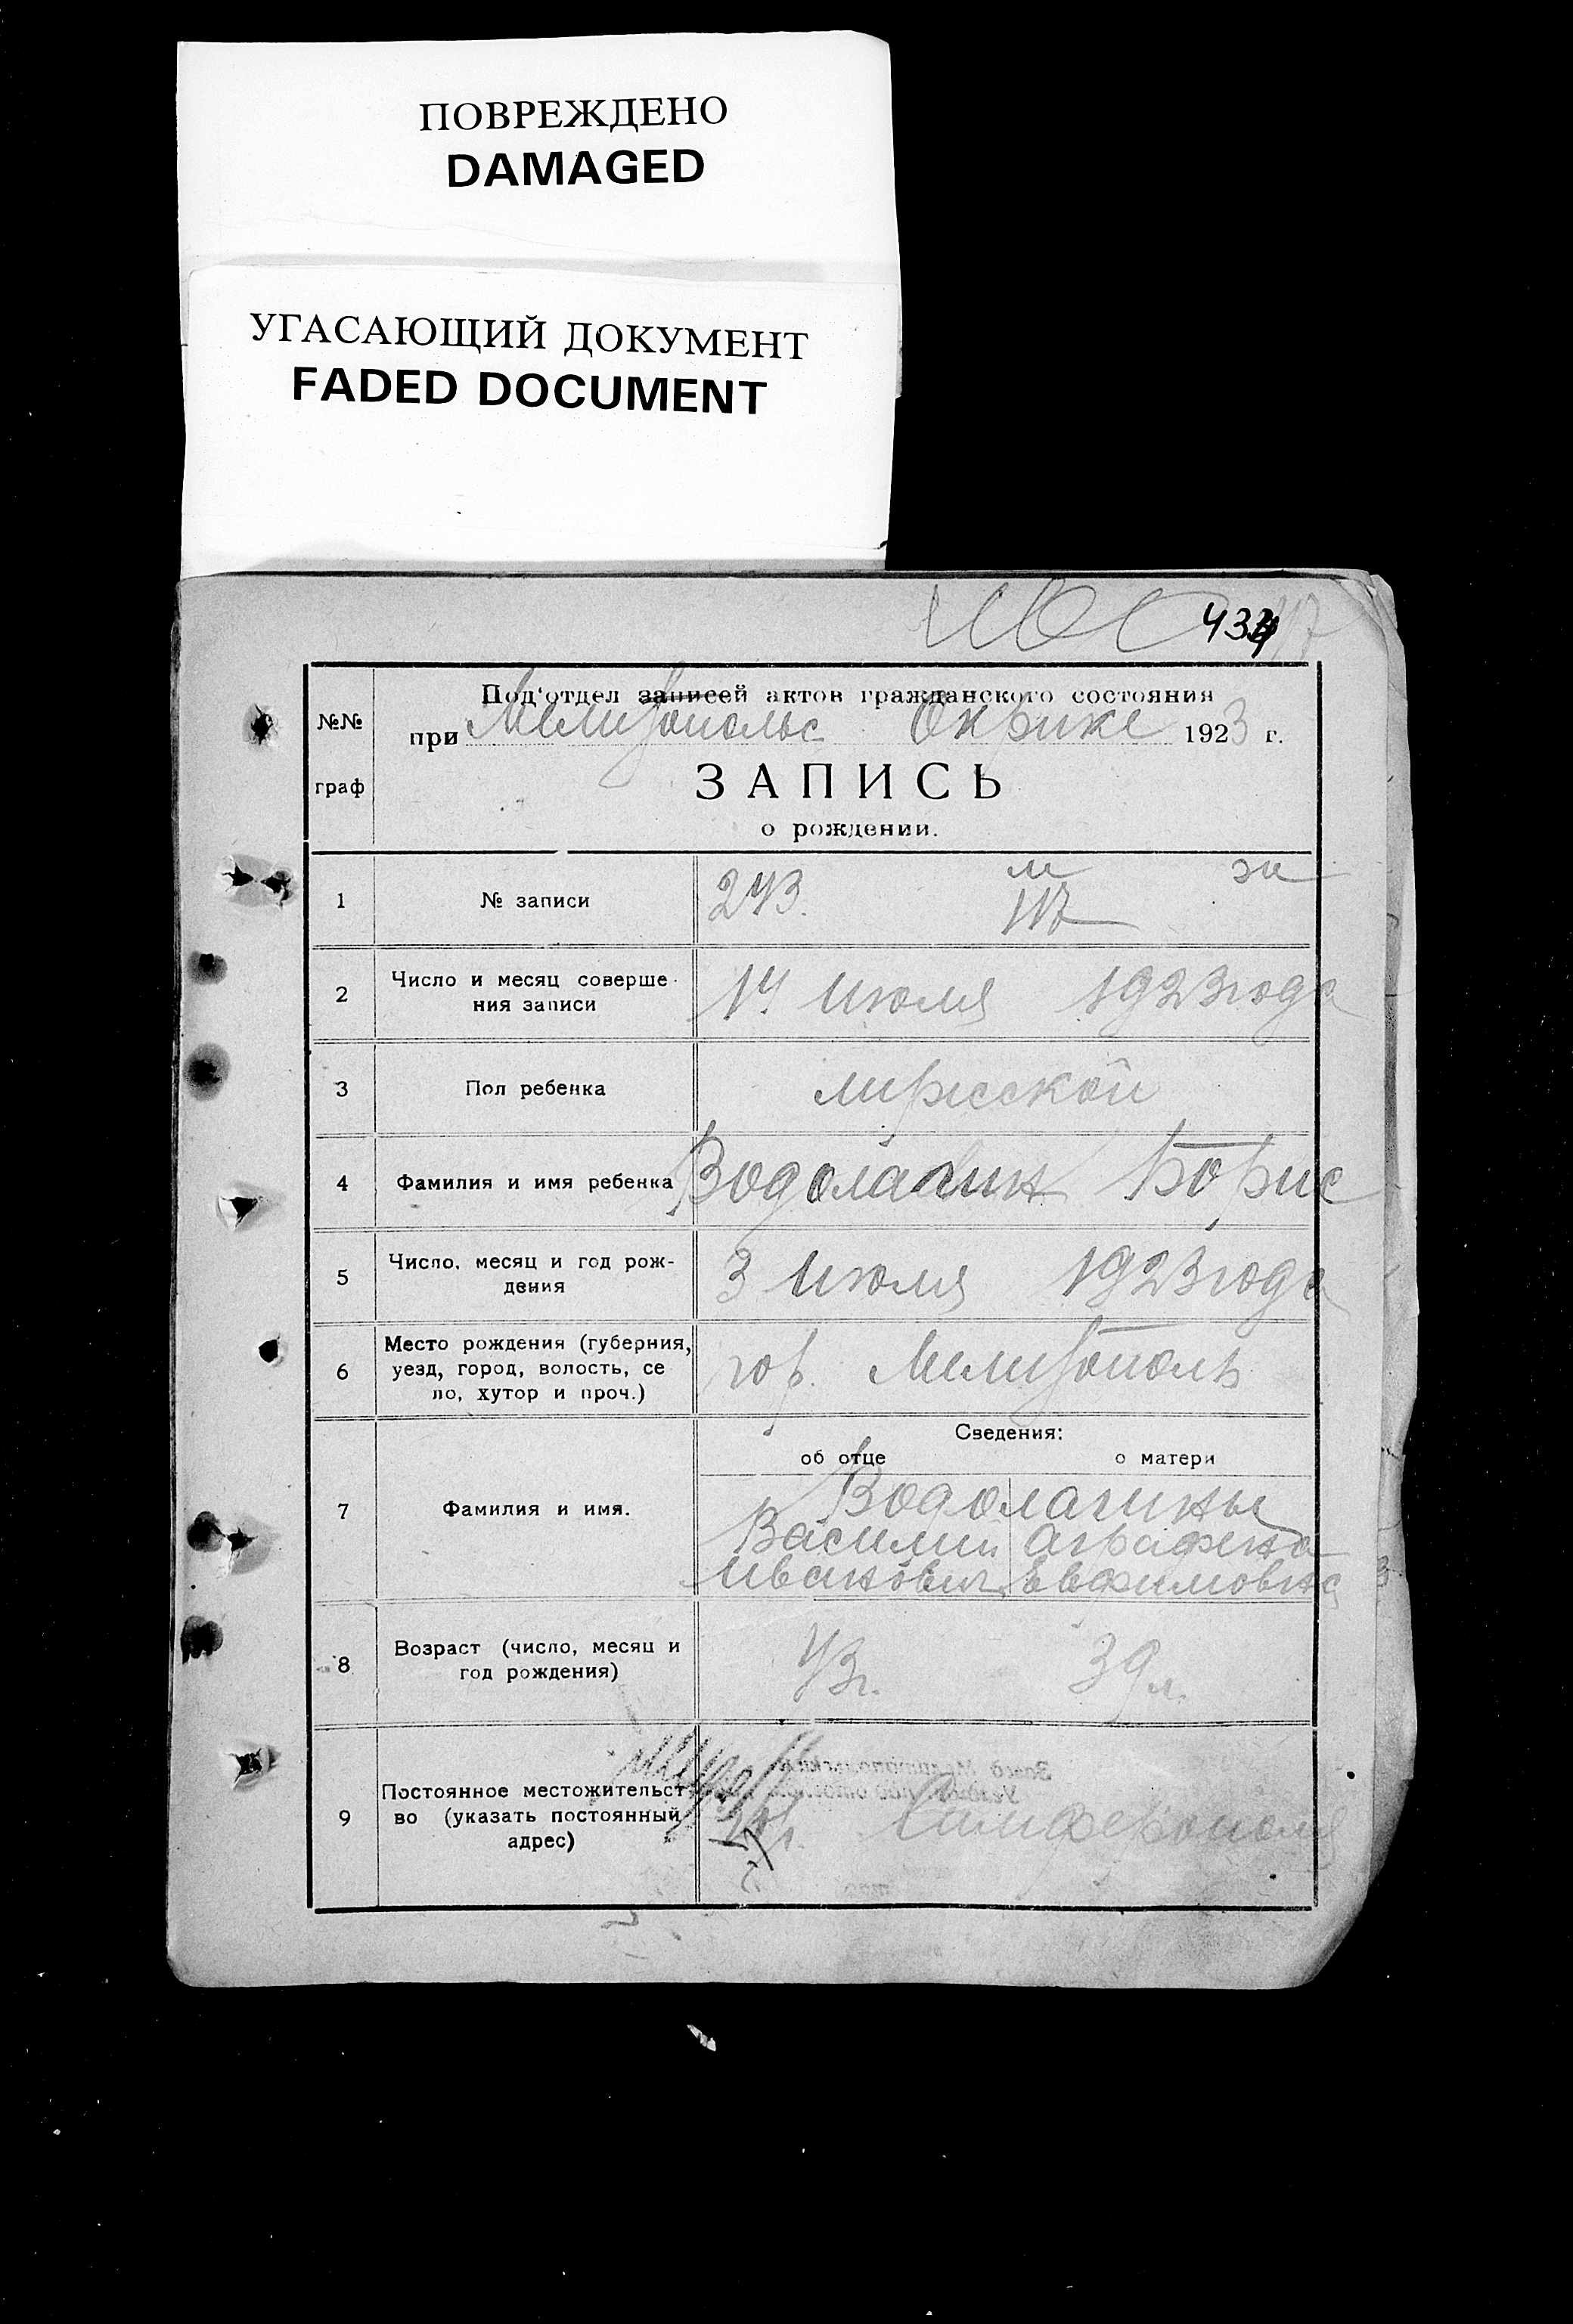 ПОВРЕЖДЕНО
DAMAGED
УГАСАЮЩИЙ ДОКУМЕНТ
FADED DOCUMENT
Под'отдел записей актов гражданского состояния
№№
при Мелитопольс Окрике 1923 г.
граф
ЗАПИСЬ
о рождении.
1 № записи 243. м 117
2 Число и месяц соверше-
ния записи 14 июля 1923 года
3 Пол ребенка мужской
4 Фамилия и имя ребенка Водолагин Борис
5 Число, месяц и год рож-
дения 3 июля 1923 года
6 Место рождения (губерния,
уезд, город, волость, се
ло, хутор и проч.) гор. Мелитополь
Сведения:
об отце о матери
7 Фамилия и имя. Водолагины
Василий Аграфена
Иванович Евфимовна
8 Возраст (число, месяц и
год рождения) 43 г. 39 л.
9 Постоянное местожительст
во (указать постоянный
адрес) Симферополя